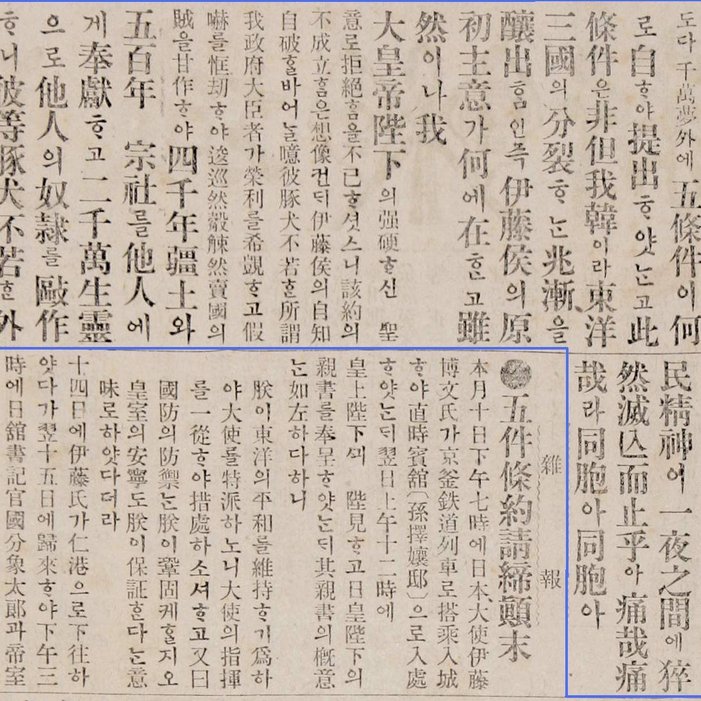 도다千萬夢外에五條件이何
로自ᄒᆞ야提出ᄒᆞ얏ᄂᆞᆫ고此
條件은非但我韓이라東洋
三國의分裂ᄒᆞᄂᆞᆫ兆漸을
釀出ᄒᆞᆷ인즉伊藤侯의原
初主意가何에在ᄒᆞᆫ고雖
然이나我
大皇帝陛下의强硬ᄒᆞ신 聖
意로拒絶ᄒᆞᆷ을不已ᄒᆞ셧스니該約의
不成立ᄒᆞᆷ은想像컨ᄃᆡ伊藤侯의自知
自破ᄒᆞᆯ바어ᄂᆞᆯ噫彼豚犬不若ᄒᆞᆫ所謂
我政府大臣者가榮利를希覬ᄒᆞ고假
嚇를恇劫ᄒᆞ야逡巡然觳觫然賣國의
賊을甘作ᄒᆞ야四千年疆土와
五百年 宗社를他人에
게奉獻ᄒᆞ고二千萬生靈
으로他人의奴隷를敺作
ᄒᆞ니彼等豚犬不若ᄒᆞᆫ外
民精神이一夜之間에猝
然滅亡而止乎아痛哉痛
哉라同胞아同胞아
雜報
五件條約請締顛末
本月十日下午七時에日本大使伊藤
博文氏가京釜鉄道列車로搭乘入城
ᄒᆞ야直時賓舘(孫擇孃邸)으로入處
ᄒᆞ얏ᄂᆞᆫᄃᆡ翌日上午十二時에
皇上陛下ᄭᅴ 陛見ᄒᆞ고日皇陛下의
親書를奉呈ᄒᆞ얏ᄂᆞᆫᄃᆡ其親書의槪意
ᄂᆞᆫ如左하다하니
朕이東洋의平和를維持ᄒᆞ기爲하
야大使를特派하노니大使의指揮
를一從ᄒᆞ야措處하소셔ᄒᆞ고又曰
國防의防禦ᄂᆞᆫ朕이鞏固케ᄒᆞᆯ지오
皇室의安寧도朕이保証ᄒᆞᆫ다ᄂᆞᆫ意
味로하얏다더라
十四日에伊藤氏가仁港으로下往하
얏다가翌十五日에歸來ᄒᆞ야下午三
時에日舘書記官國分象太郞과帝室